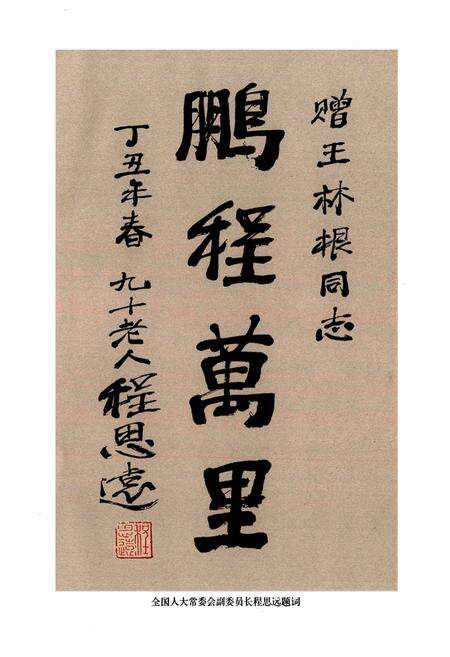 赠王林根同志
鹏程萬里
丁丑年春 九十老人程思遠
全国人大常委会副委员长程思远题词